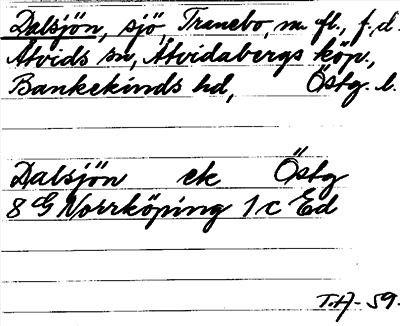 Dalsjön, sjö, Tranebo, m. fl., f.d.
Åtvids sn, Åtvidabergs köp,
Bankekinds hd, Östg. l.
Dalsjön ek Östg
8 G Norrköping 1c Ed
T.H-59.